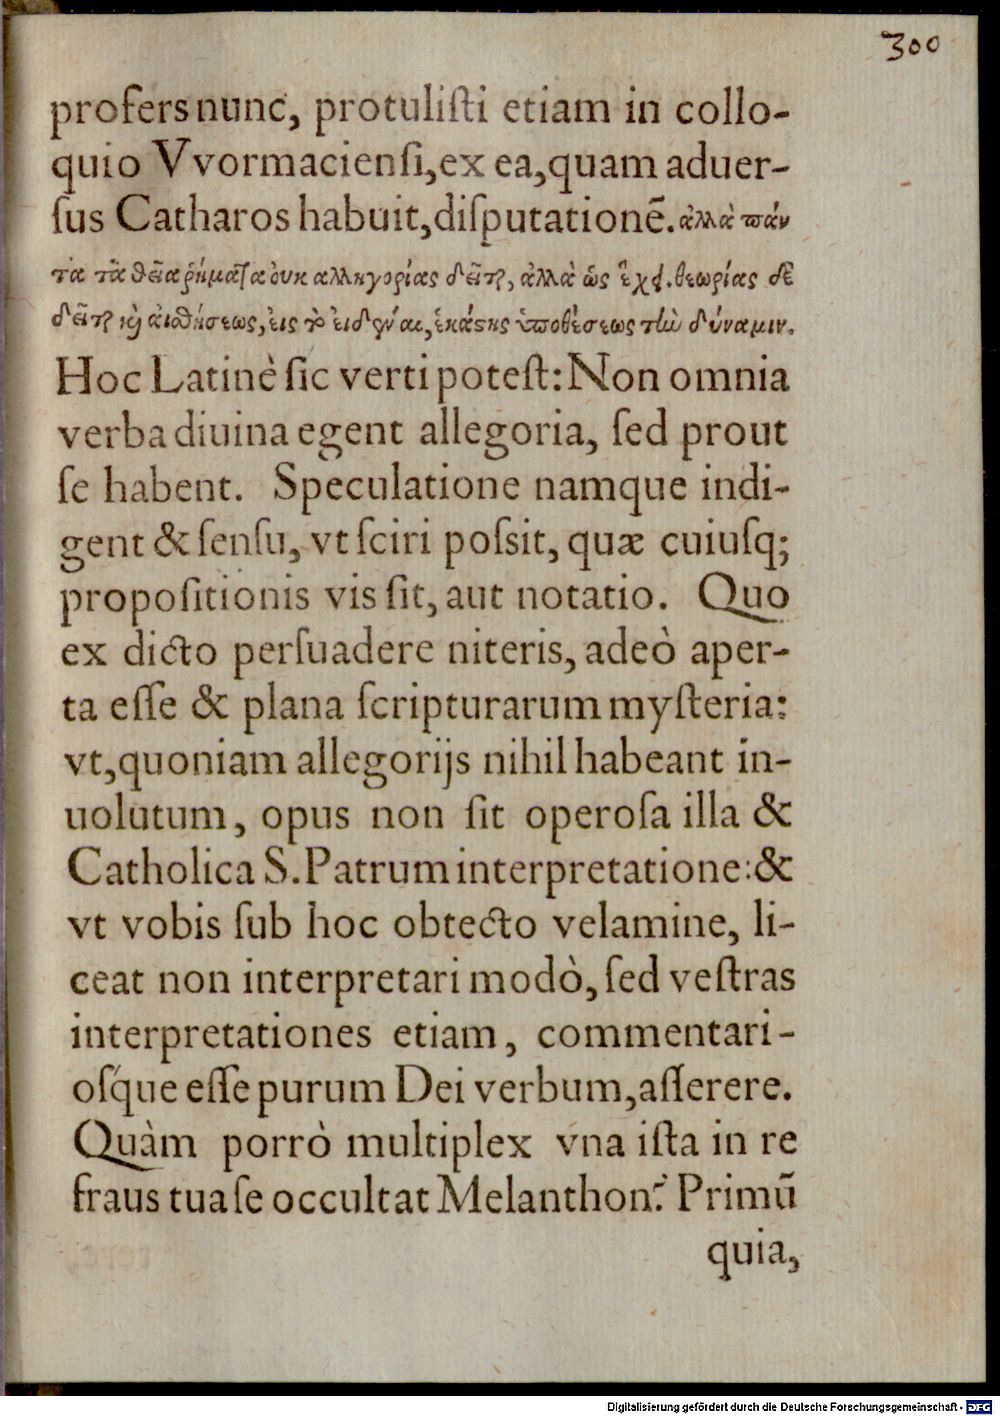 300
profers nunc, protuliſti etiam in collo-
quio Vvormacienſi, ex ea, quam aduer-
ſus Catharos habuit, diſputationē. ἀλλὰ πάν
τα τὰ θεῖα ῥήματα οὐκ ἀλληγορίας δεῖται, ἀλλὰ ὡς ἔχει. θεωρίας δὲ
δεῖται καὶ αἰσθήσεως, εἰς τὸ εἰδέναι, ἑκάστης ὑποθέσεως τὴν δύναμιν.
Hoc Latinè ſic verti poteſt: Non omnia
verba diuina egent allegoria, ſed prout
ſe habent. Speculatione namque indi-
gent & ſenſu, vt ſciri poſsit, quæ cuiuſq;
propoſitionis vis ſit, aut notatio. Quo
ex dicto perſuadere niteris, adeò aper-
ta eſſe & plana ſcripturarum myſteria:
vt, quoniam allegorijs nihil habeant in-
uolutum, opus non ſit operoſa illa &
Catholica S. Patrum interpretatione: &
vt vobis ſub hoc obtecto velamine, li-
ceat non interpretari modò, ſed veſtras
interpretationes etiam, commentari-
oſq́ue eſſe purum Dei verbum, aſſerere.
Quàm porrò multiplex vna iſta in re
fraus tua ſe occultat Melanthon? Primū
quia,
Digitalisierung gefördert durch die Deutsche Forschungsgemeinschaft - DFG